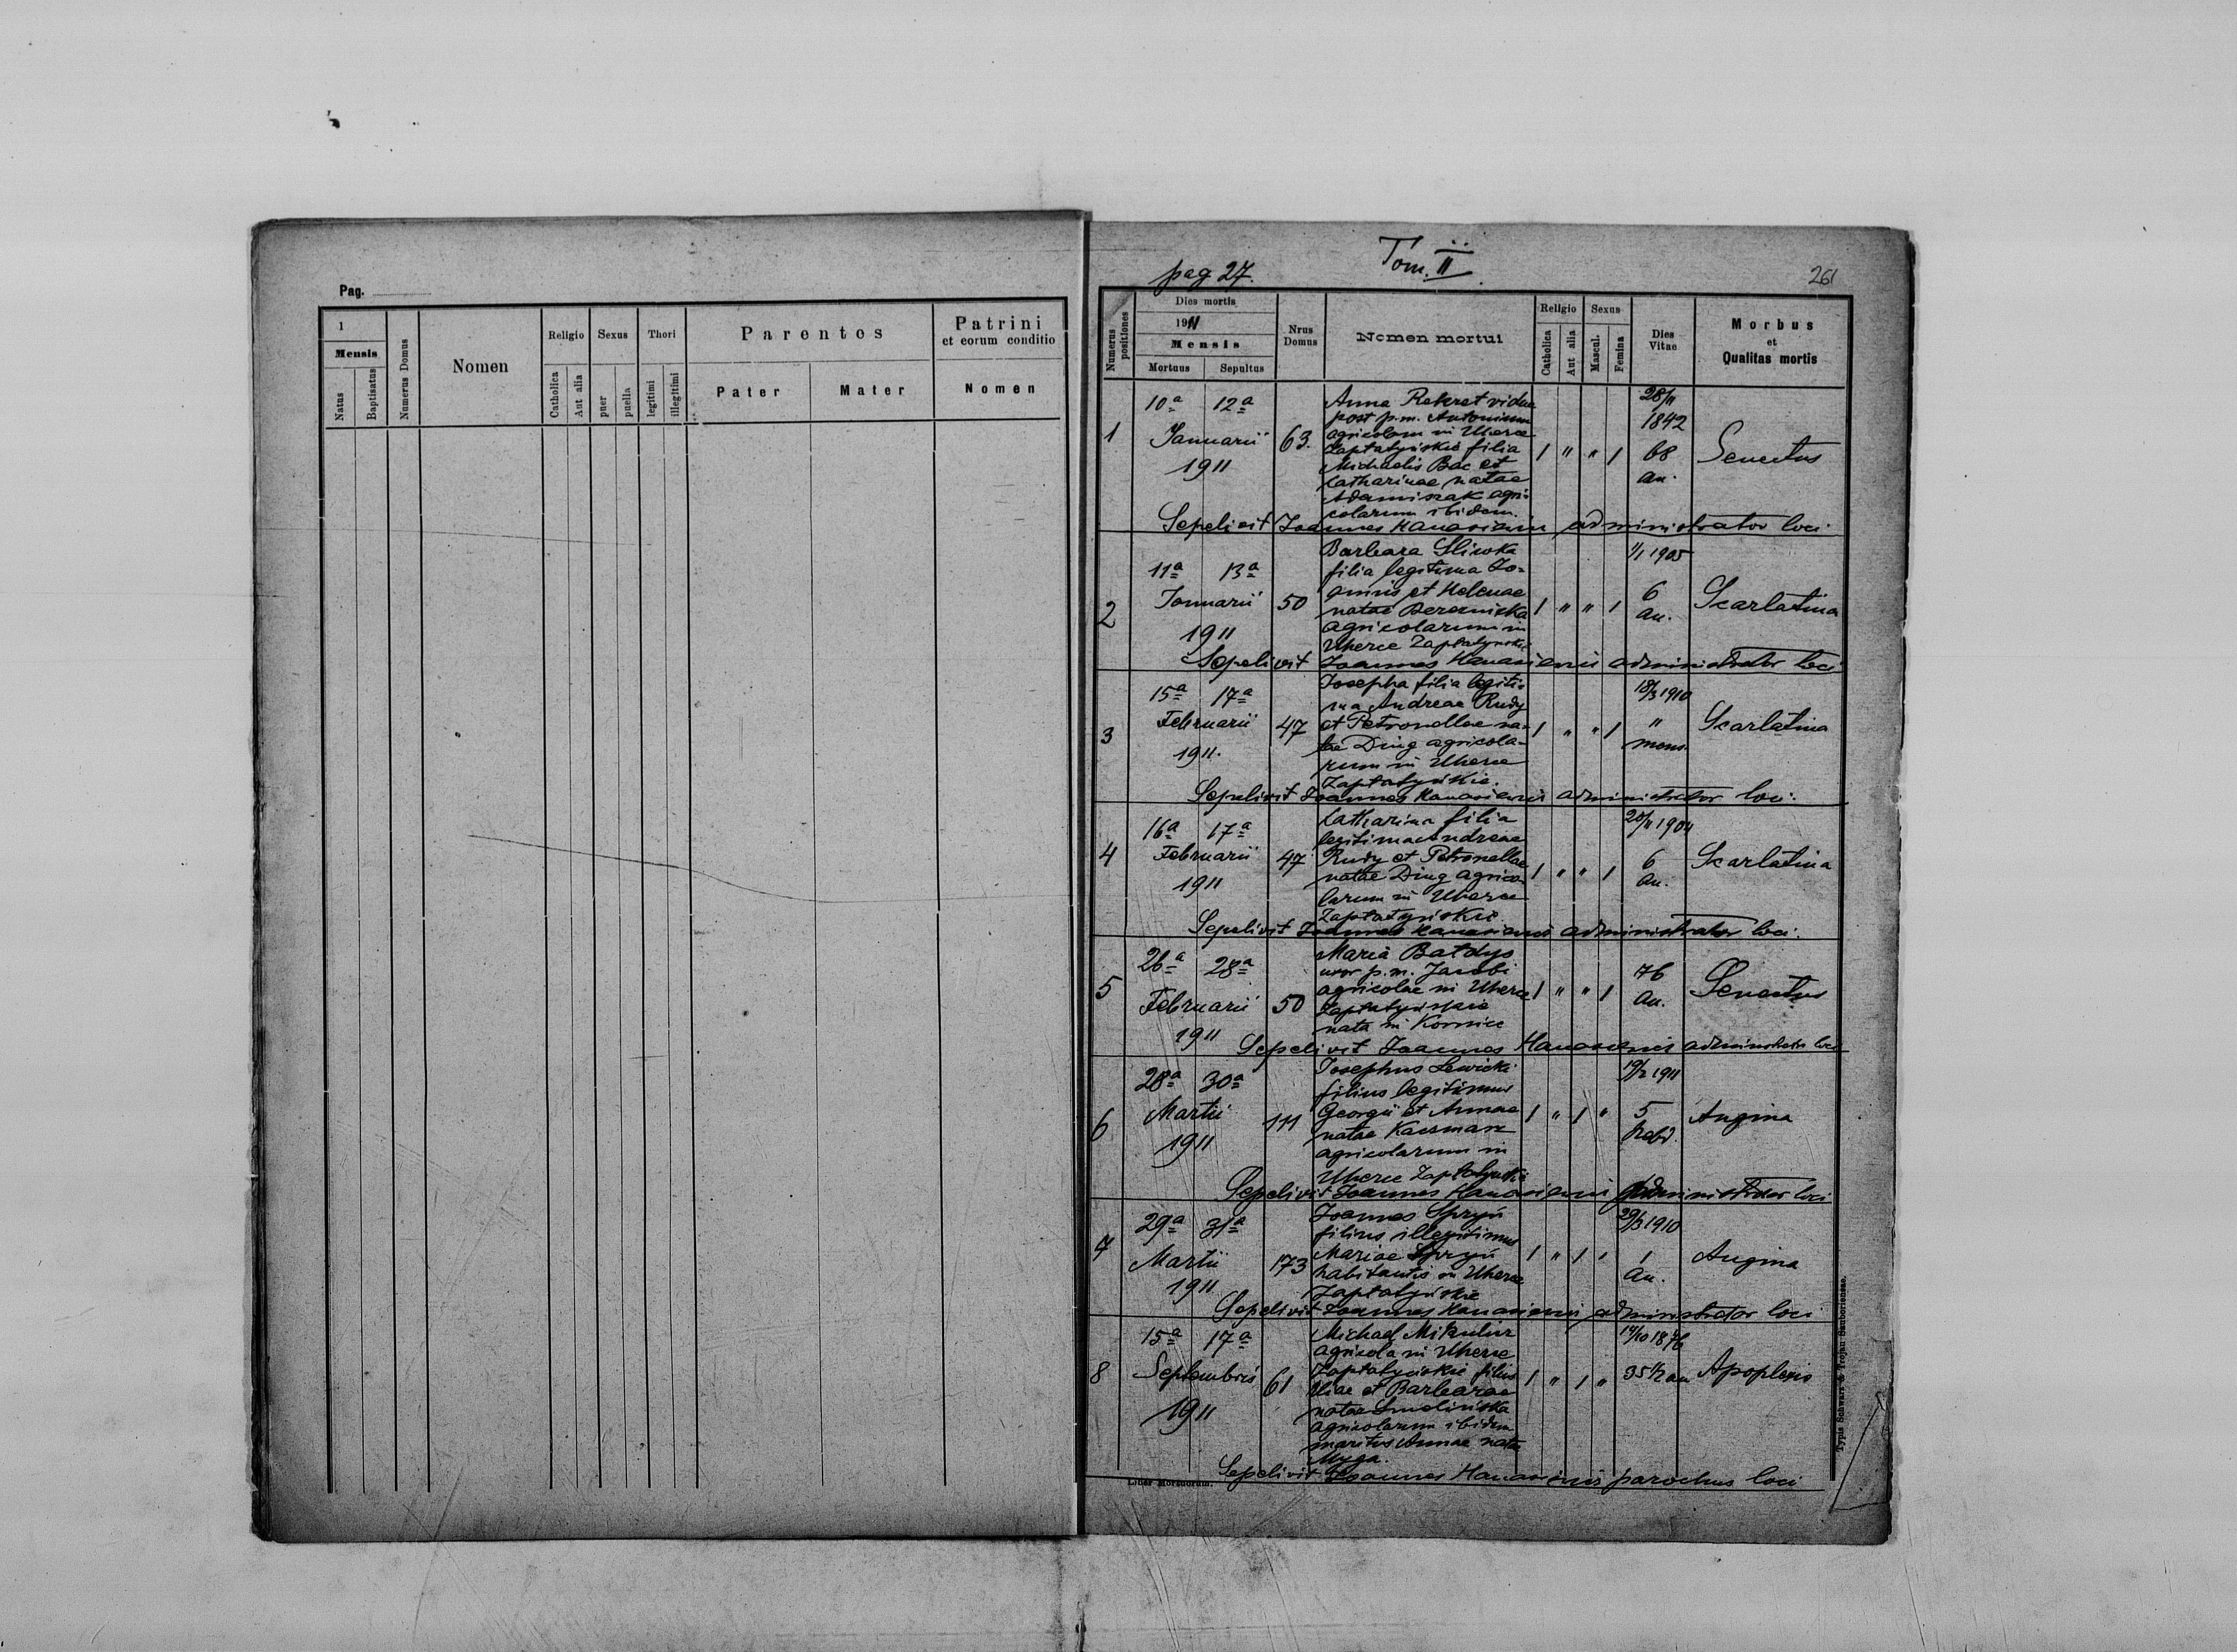 Pag.
1
Mensis
Natus
Baptisatus
Numerus Domus
Nomen
Religio
Catholica
Aut alia
Sexus
puer
puella
Thori
legitimi
illegitimi
Parentes
Pater
Mater
Patrini
et eorum conditio
Nomen
Tom. II
pag 27.
261
Numerus positiones
Dies mortis
1911
Mensis
Mortuus
Sepultus
Nrus
Domus
Nomen mortui
Religio
Catholica
Aut alia
Sexus
Mascul.
Femina
Dies
Vitae
Morbus
et
Qualitas mortis
1
10a 12a
Januarii
1911
63.
Anna Rekret vidua
post p.m. Antonium
agricolam in Uherce
Zapłatyńskie filia
Michaelis Bac et
Catharinae natae
Adamiszak agri-
colarum ibidem.
1 " " 1
28/11
1842
68
an.
Senectus
Sepelivit Joannes administrator loci.
2
11a 13a
Januarii
1911
50
Barbara Śliwka
filia legitima Jo-
annis et Helenae
natae Bereznicka
agricolarum in
Uherce Zapłatyńskie
1 " " 1
1/1 1905
6
an.
Scarlatina
Sepelivit Joannes administrator loci
3
15a 17a
Februarii
1911.
47
Josepha filia legiti-
ma Andreae Rudy
et Petronellae na-
tae Ding agricola-
rum in Uherce
Zapłatyńskie.
1 " " 1
18/3 1910
11
mens.
Scarlatina
Sepelivit Joannes administrator loci.
4
16a 17a
Februarii
1911
47
Catharina filia
legitima Andreae
Rudy et Petronellae
natae Ding agrico-
larum in Uherce
Zapłatyńskie.
1 " " 1
20/11 1904
6
an.
Scarlatina
Sepelivit Joannes administrator loci.
5
26a 28a
Februarii
1911
50
Maria Bałdys
uxor p.m. Jacobi
agricolae in Uherce
Zapłatyńskie
nata in Kornice
1 " " 1
76
an.
Senectus
Sepelivit Joannes administrator loci
6
28a 30a
Martii
1911
111
Josephus Lewicki
filius legitimus
Georgii et Annae
natae Kaczmarz
agricolarum in
Uherce Zapłatyńskie
1 " 1 "
19/2 1911
5
hebd.
Angina
Sepelivit Joannes administrator loci
7
29a 31a
Martii
1911
173
Joannes Spryń
filius illegitimus
Mariae Spryń
habitantis in Uherce
Zapłatyńskie
1 " 1 "
29/3 1910
1
an.
Angina
Sepelivit Joannes administrator loci
8
15a 17a
Septembris
1911
61
Michael Mikulicz
agricola in Uherce
Zapłatyńskie filius
Eliae et Barbarae
natae Smolińska
agricolarum ibidem
maritus Annae nata
Myga.
1 " 1 "
14/10 1876
35 1/2 an
Apoplexis
Sepelivit Joannes parochus loci
Liber Mortuorum.
Typis Schwarz & Trojan Samboriensae.